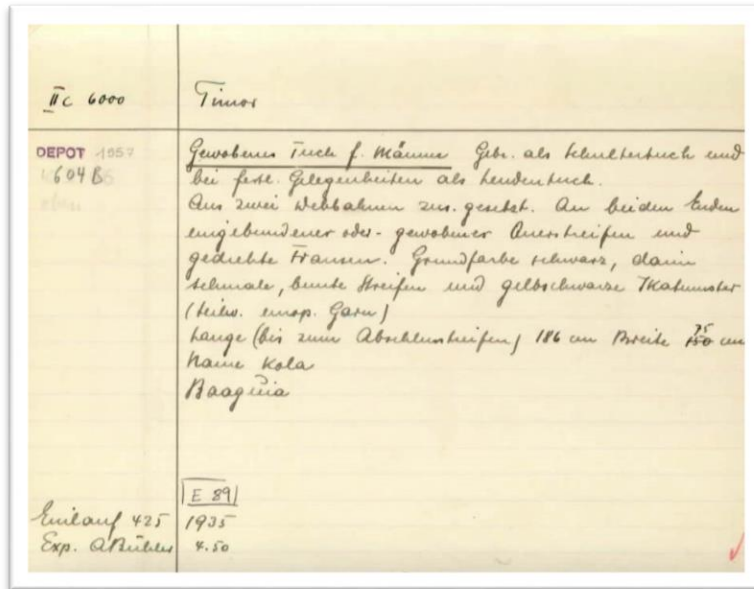 IIc 6000 Timor
DEPOT 1957
604B
oben
Gewobenes Tuch f. Männer Gebr. als Schultertuch und
bei festl. Gelegenheiten als Lendentuch.
Aus zwei Webbahnen zus. gesetzt. An beiden Enden
eingebundener oder- gewobener Querstreifen und
gedrehte Fransen. Grundfarbe schwarz, darin
schmale, bunte Streifen und gelbschwarze Ikatmuster
(teilw. europ. Garn)
Länge (bis zum Abschlusstreifen) 186 cm Breite 150 75 cm
Name Kola
Baaguia
E 89
Einlauf 425 1935
Exp. A Bühler 4.50